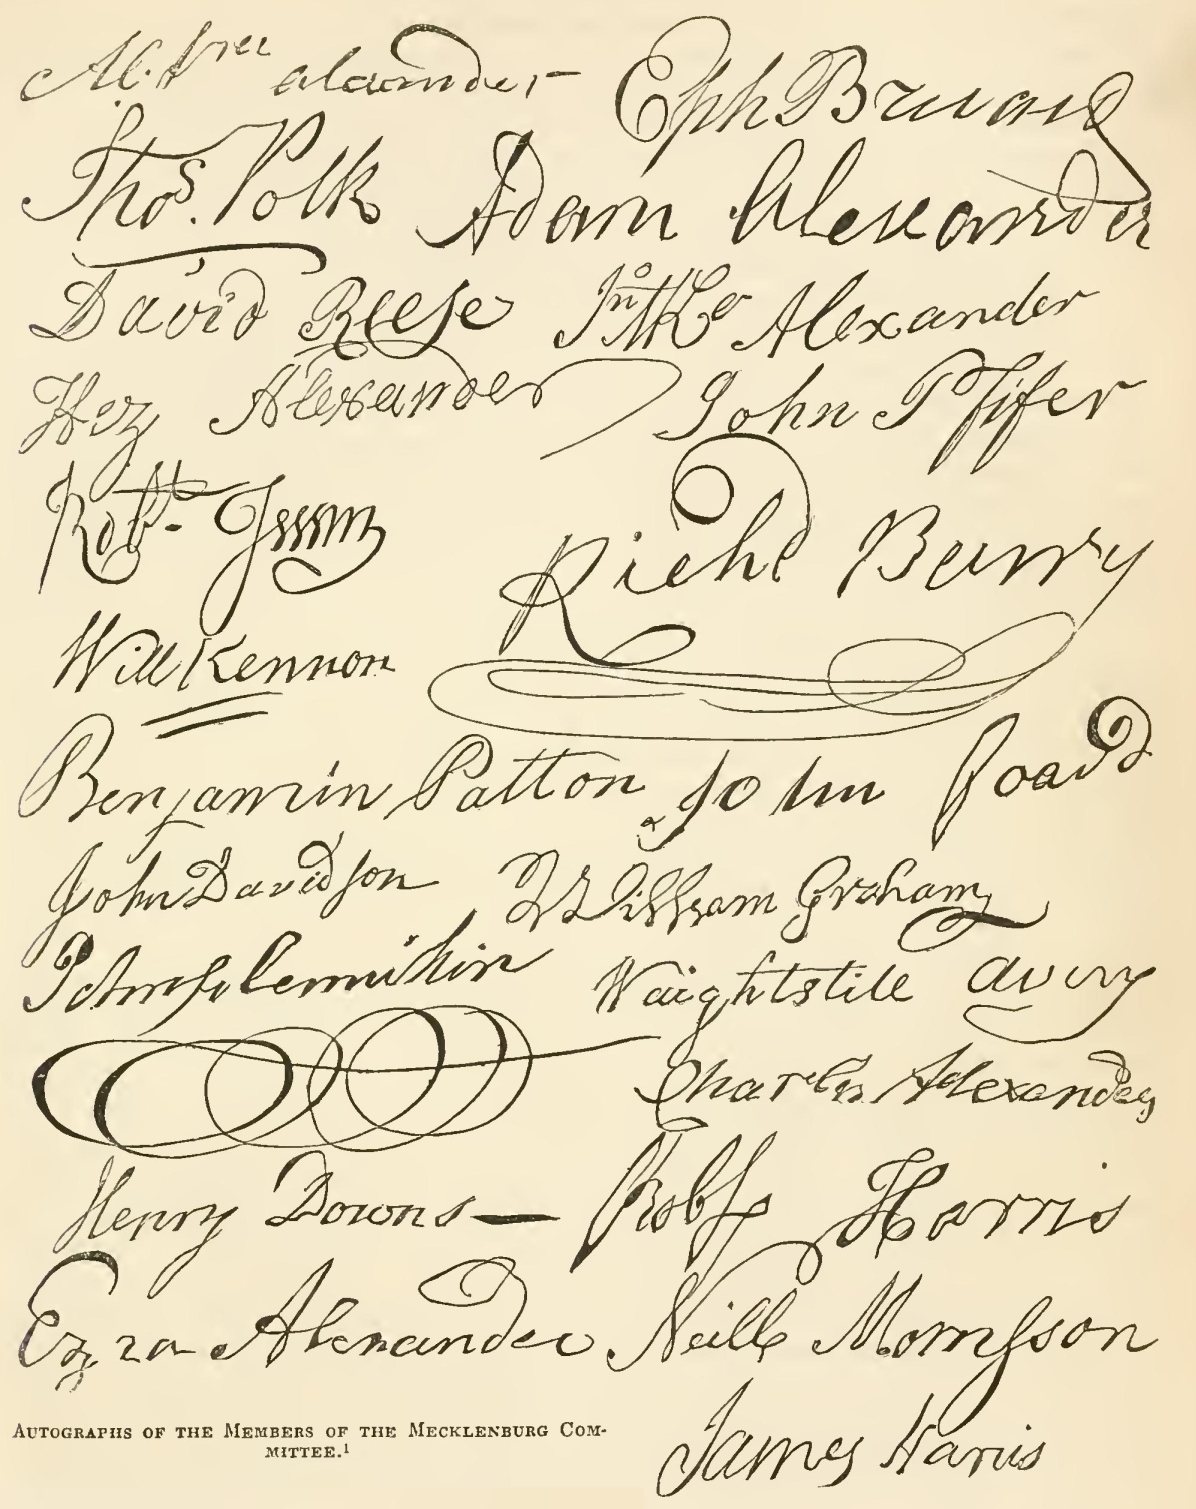 Abrm alexander
Eph Brevard
Thos. Polk
Adam Alexander
David Reese
Jno McKo Alexander
Hez Alexander
John Pfifer
Robt Irwin
Richd Barry
Will Kennon
Benjamin Patton
John foard
John Davidson
William Graham
Waightstill avery
Charles Alexander
Henry Downs
Robt Harris
Ezra Alexander
Neill Morrison
James Harris
AUTOGRAPHS OF THE MEMBERS OF THE MECKLENBURG COM-
MITTEE.¹